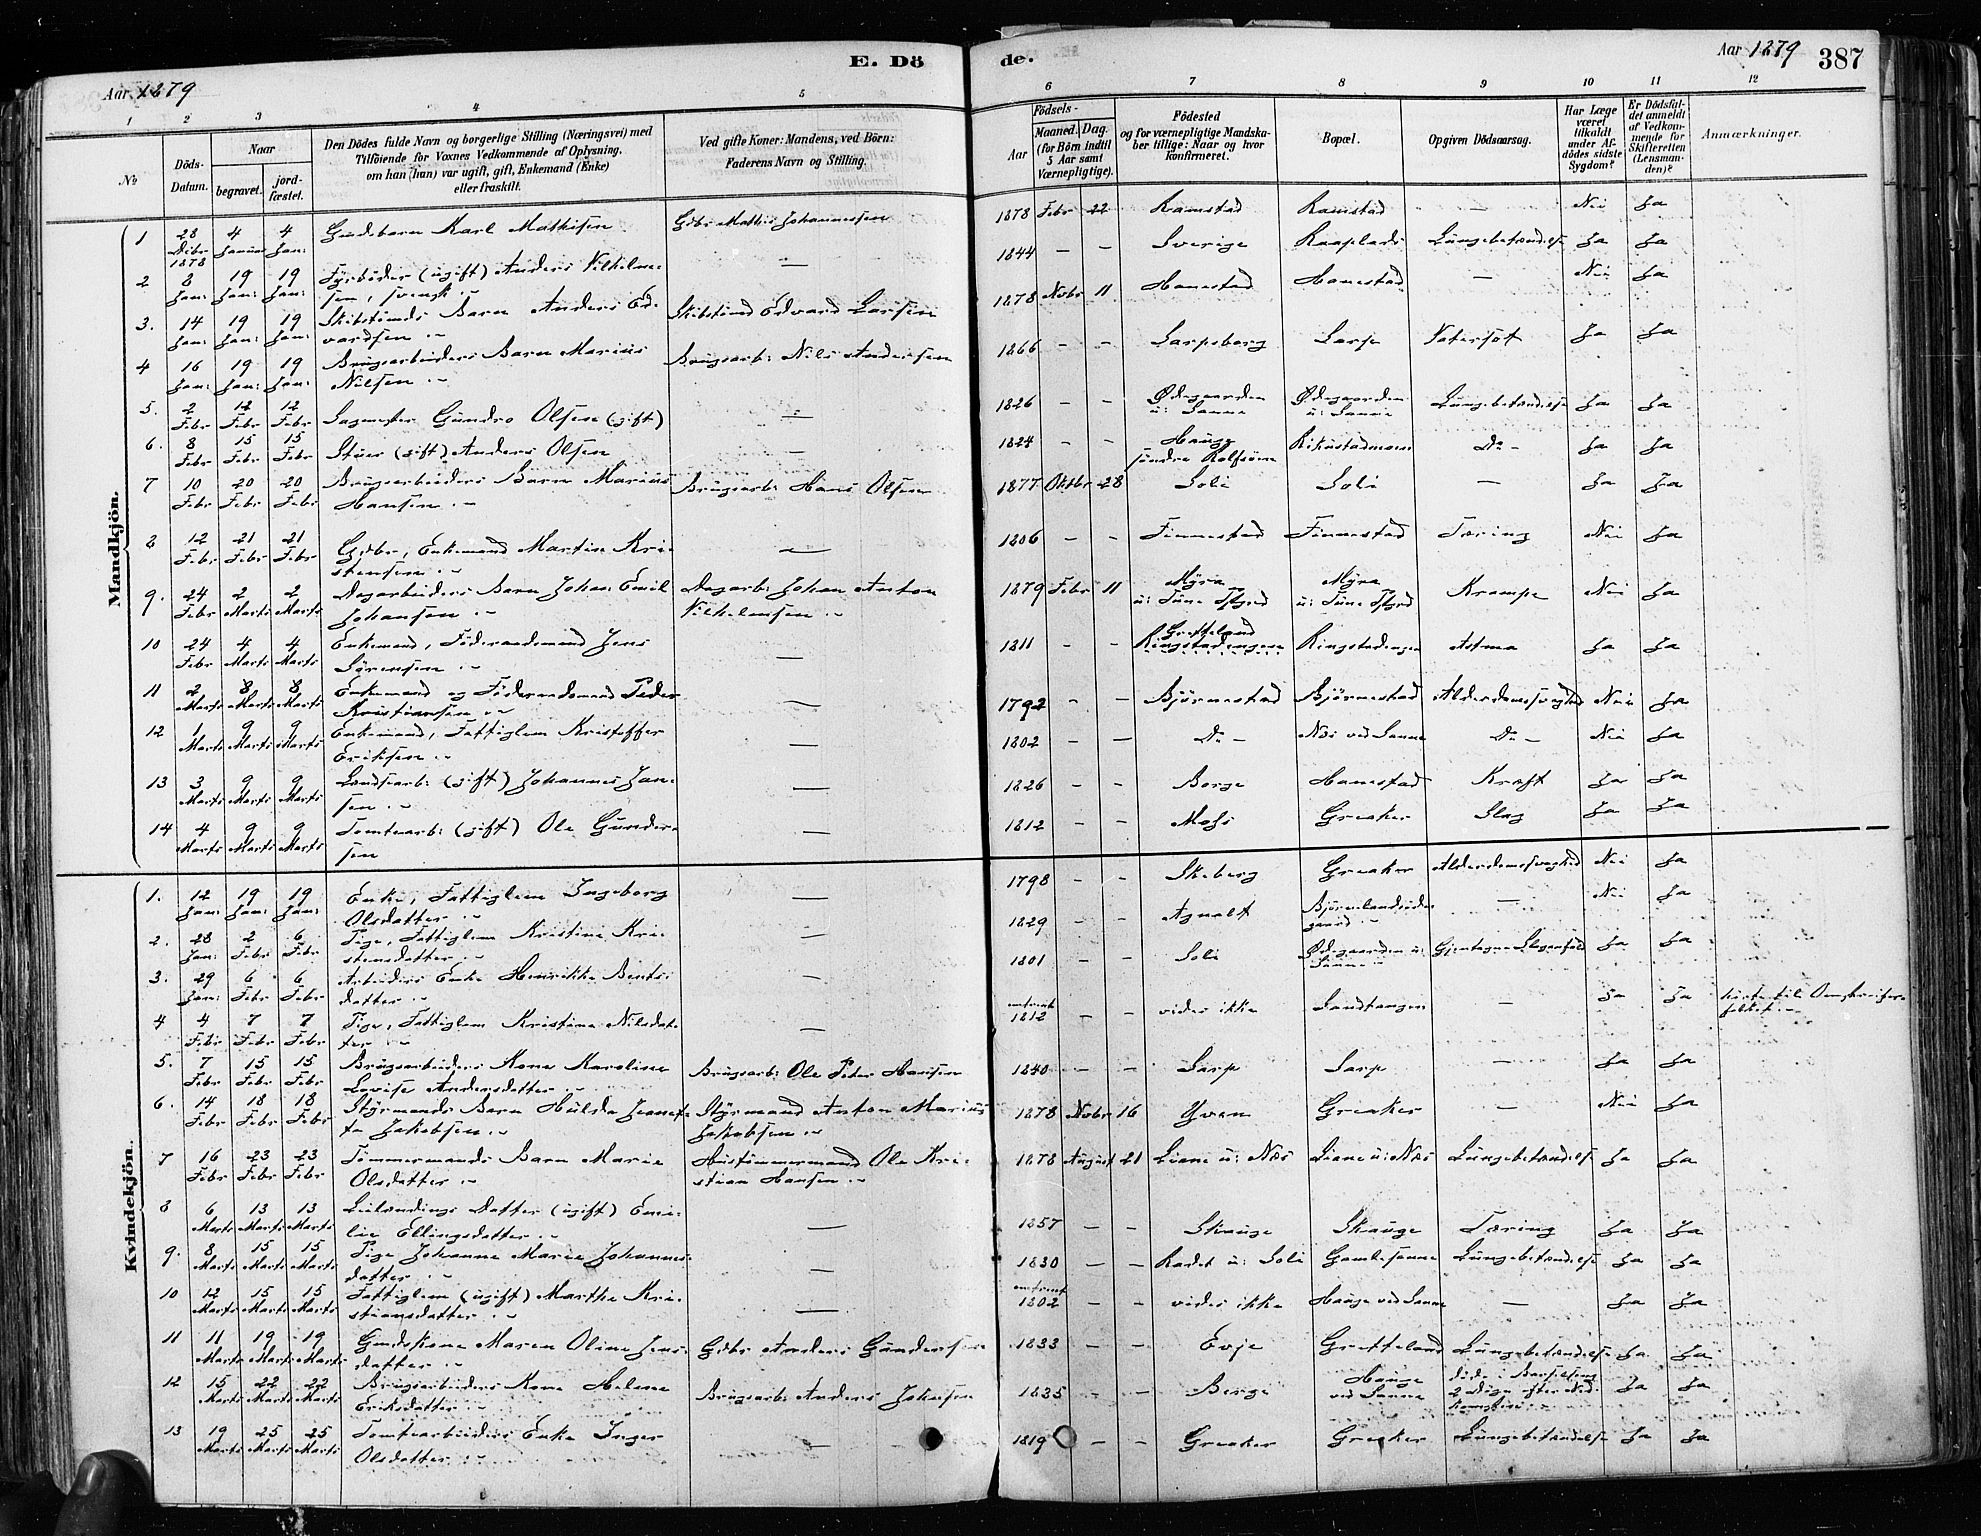 Aar 1879
E. Döde.
Aar 1879
387
1 2 3 4 5 6 7 8 9 10 11 12
No
Döds-Datum.
Naar begravet. jordfæstet.
Den Dödes fulde Navn og borgerlige Stilling (Næringsvei) med
Tilföiende for Voxnes Vedkommende af Oplysning,
om han (hun) var ugift, gift, Enkemand (Enke)
eller fraskilt.
Ved gifte Koner: Mandens, ved Börn:
Faderens Navn og Stilling.
Födsels-
Aar
Maaned. Dag.
(for Börn indtil 5 Aar samt Værnepligtige).
Födested
og for værnepligtige Mandskaber tillige: Naar og hvor konfirmeret.
Bopæl.
Opgiven Dödsaarsag.
Har Læge været tilkaldt under Afdödes sidste Sygdom?
Er Dödsfaldet anmeldt af Vedkommende for Skifteretten (Lensmanden)?
Anmærkninger.
Mandkjön.
1 28 Debr 1878 4 Januar 4 Jan: Gaardbarn Karl Mathisen Gdbr Mathis Johannessen 1878 Febr 22 Ramstad Ramstad — Nei Ja
2 8 Jan: 19 Jan: 19 Jan: Fyrböder (ugift) Anders Vilhelmsen, svensk — 1844 — — Sverige Lungebetændelse Ja Ja
3. 14 Jan: 19 Jan: 19 Jan: Skibstömds Barn Anders Edvardsen Skibstömd Edvard Larsen 1878 Novbr 11 Hanestad Hanestad — Nei Ja
4 16 Jan: 19 Jan: 19 Jan: Brugsarbeiders Barn Marius Nilsen Brugsarb: Nils Andersen 1866 — — Sarpsborg Sarp Vatersot Ja Ja
5. 2 Febr 12 Febr 12 Febr Sagmester Gundro Olsen (gift) — 1826 — — Ødegaarden u: Sanne Ødegaarden u: Sanne Lungebetændelse Ja Ja
6. 8 Febr 15 Febr 15 Febr Stuer (gift) Anders Olsen — 1824 — — Hauge söndre Rolfsöen Do Ja Ja
7 10 Febr 20 Febr 20 Febr Brugsarbeiders Barn Marius Hansen Brugsarb: Hans Olsen 1877 Oktbr 28 Soli Soli — Ja Ja
8 12 Febr 21 Febr 21 Febr Gdbr, Enkemand Martin Kristensen — 1806 — — Finnestad Finnestad Tæring Nei Ja
9. 24 Febr 2 Marts 2 Marts Dagarbeiders Barn Johan Emil Johansen Dagarb: Johan Anton Vilhelmsen 1879 Febr 11 Myra u: Tune Myra u: Tune Krampe Nei Ja
10 24 Febr 4 Marts 4 Marts Enkemand, Föderaadsmand Jens Sörensen — 1811 — — Gretteland Ringstadengen Ringstadengen Astma Ja Ja
11 2 Marts 8 Marts 8 Marts Enkemand og Föderaadsmand Peder Kristiansen — 1792 — — Björnestad Björnestad Alderdomssvaghed Nei Ja
12 1 Marts 9 Marts 9 Marts Enkemand, Fattiglem Kristoffer Eriksen — 1802 — — Do Næs ved Sanne Do Nei Ja
13 3 Marts 9 Marts 9 Marts Landsarb: (gift) Johannes Jansen — 1826 — — Borge Hanestad Kræft Ja Ja
14 4 Marts 9 Marts 9 Marts Tomtearb: (gift) Ole Gundersen — 1812 — — Moss Greaker Slag Ja Ja
Kvindekjön.
1. 12 Jan: 19 Jan: 19 Jan: Enke, Fattiglem Ingeborg Olsdatter — 1798 — — Skeberg Greaker Alderdomssvaghed Nei Ja
2. 28 Jan: 2 Febr 6 Febr Pige, Fattiglem Kristine Kristensdatter — 1829 — — Agnalt — Nei Ja
3. 29 Jan: 6 Febr 6 Febr Arbeiders Enke Henrikke Bentsdatter — 1801 — — Soli Ødegaarden u: Sanne Gjentagne Slaganfald Ja Ja
4 4 Febr 7 Febr 7 Febr Pige, Fattiglem Kristine Nilsdatter — omtrent 1812 — — vides ikke Sandtangen — Ja Ja hörte til Omstreiferfolket
5. 7 Febr 15 Febr 15 Febr Brugsarbeiders Kone Karoline Lovise Andersdatter Brugsarb: Ole Peter Hansen 1840 — — Sarp Sarp — Ja Ja
6. 14 Febr 18 Febr 18 Febr Styrmands Barn Hulda Jeanette Jakobsen Styrmand Anton Marius Jakobsen 1878 Novbr 16 Yven Greaker — Nei Ja
7 16 Febr 23 Febr 23 Febr Tömmermands Barn Marie Olsdatter Hustömmermand Ole Kristian Hansen 1878 August 21 Liane u: Næs Liane u: Næs Lungebetændelse Ja Ja
8 6 Marts 13 Marts 13 Marts Leilændings Datter (ugift) Emilie Ellingsdatter — 1857 — — Skauge Skauge Tæring Ja Ja
9. 8 Marts 15 Marts 15 Marts Pige Johanne Marie Johannesdatter — 1830 — — Radet u: Soli Gamlesanne Lungebetændelse Ja Ja
10 12 Marts 15 Marts 15 Marts Fattiglem (ugift) Marthe Kristiansdatter — omtrent 1802 — — vides ikke Hauge ved Sanne — Ja Ja
11 11 Marts 19 Marts 19 Marts Gaardskone Maren Oline Jensdatter Gdbr Anders Gundersen 1833 — — Evje Gretteland Lungebetændelse Ja Ja
12 15 Marts 22 Marts 22 Marts Brugsarbeiders Kone Helene Eriksdatter Brugsarb: Anders Johnsen 1835 — — Berge Hauge ved Sanne döde i Barselseng 2 Dage efter Nedkomsten Ja Ja
13 19 Marts 25 Marts 25 Marts Tomtearbeiders Enke Inger Olsdatter — 1819 — — Greaker Greaker Lungebetændelse Ja Ja